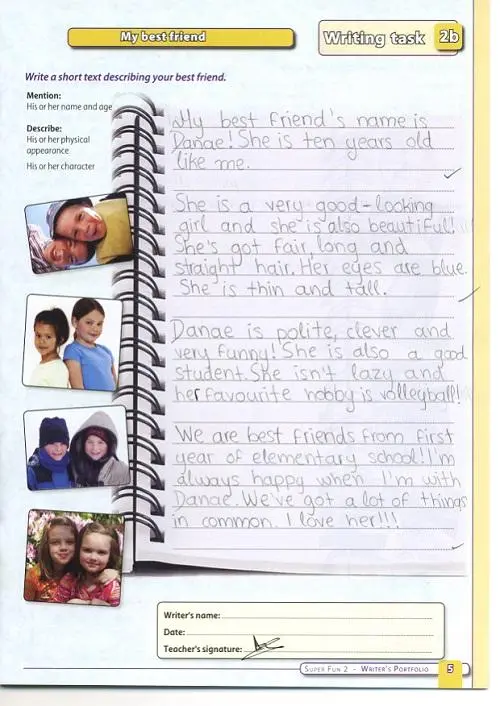 My best friend
Writing task 2b
Write a short text describing your best friend.
Mention:
His or her name and age
Describe:
His or her physical
appearance
His or her character
My best friend's name is
Danae! She is ten years old
like me.
She is a very good-looking
girl and she is also beautiful!
She's got fair, long and
straight hair. Her eyes are blue.
She is thin and tall.
Danae is polite, clever and
very funny! She is also a good
student. She isn't lazy and
her favourite hobby is volleyball!
We are best friends from first
year of elementary school! I'm
always happy when I'm with
Danae. We've got a lot of things
in common. I love her!!!
Writer's name:
Date:
Teacher's signature:
Super Fun 2 - Writer's Portfolio 5